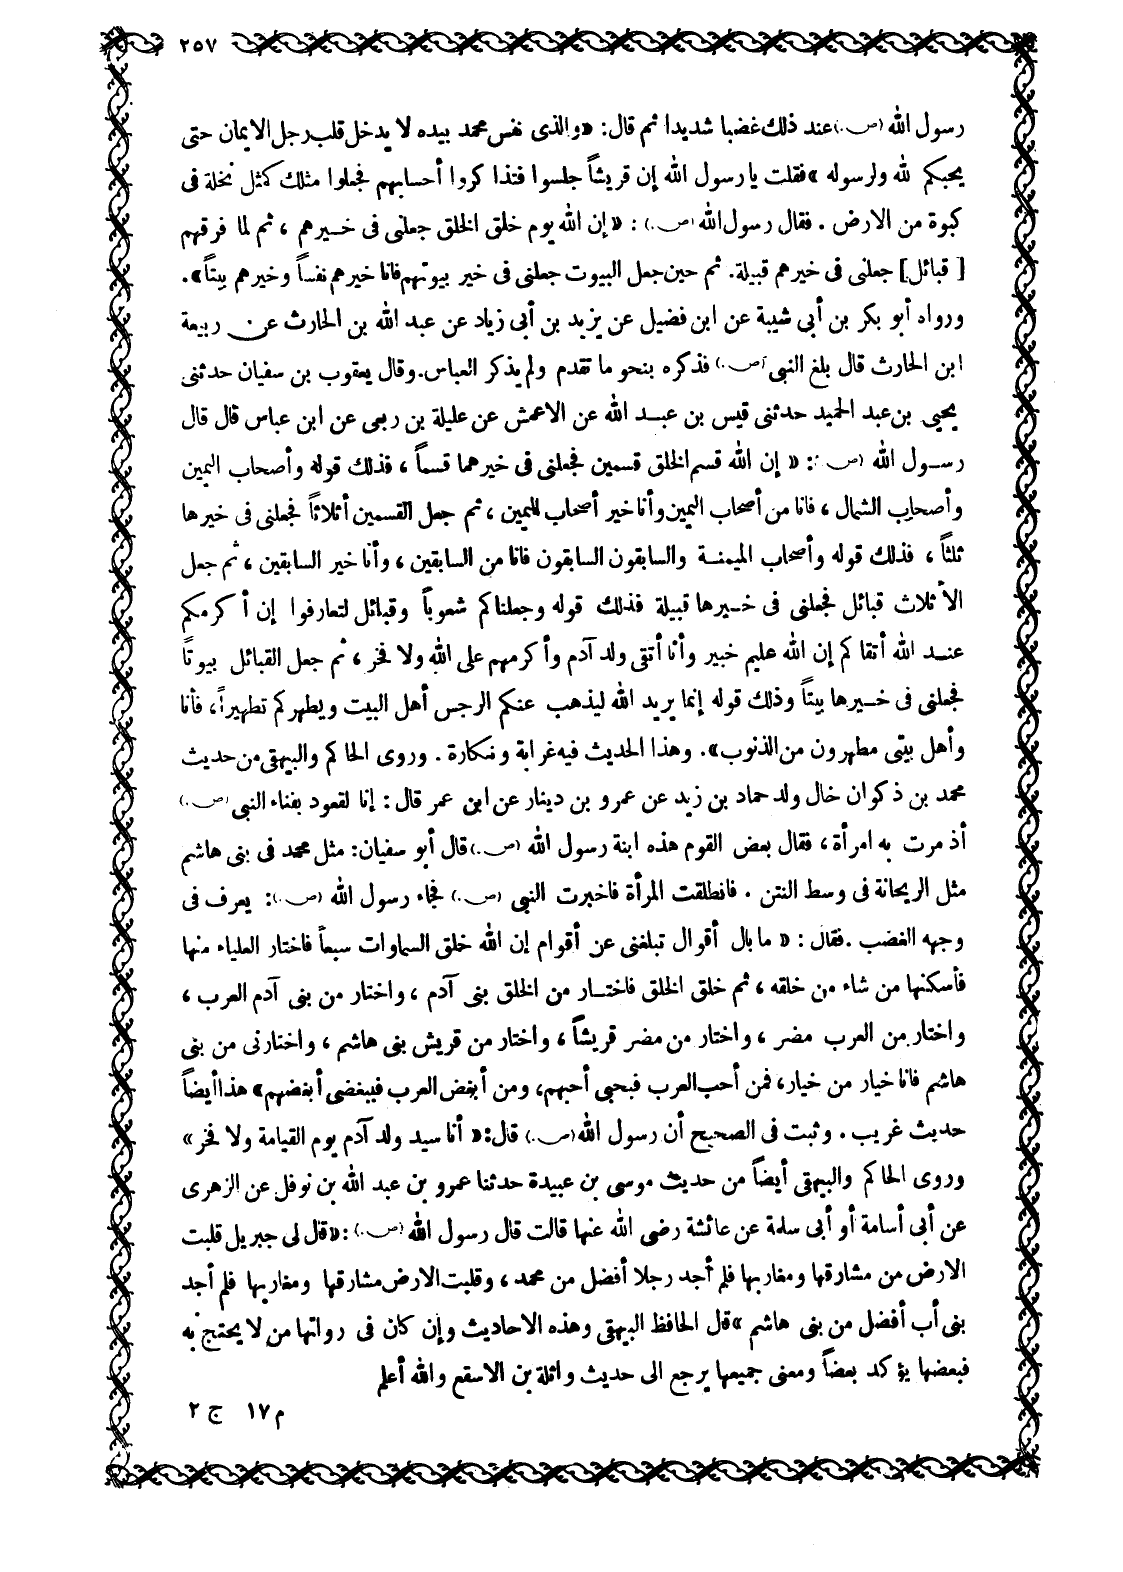 ٢٥٧
رسول الله (ص.) عند ذلك غضبا شديدا ثم قال: «والذى نفس محمد بيده لا يدخل قلب رجل الايمان حتى
يحبكم لله ولرسوله» فقلت يا رسول الله إن قريشاً جلسوا فتذا كروا أحسابهم فجعلوا مثلك كمثل نخلة فى
كبوة من الارض . فقال رسول الله (ص.) : «إن الله يوم خلق الخلق جعلنى فى خـيرهم ، ثم لما فرقهم
[ قبائل] جعلنى فى خيرهم قبيلة. ثم حين جعل البيوت جعلنى فى خير بيوتهم فانا خيرهم نفساً وخيرهم بيتاً».
ورواه أبو بكر بن أبى شيبة عن ابن فضيل عن يزيد بن أبى زياد عن عبد الله بن الحارث عن ربيعة
ابن الحارث قال بلغ النبى (ص.) فذكره بنحو ما تقدم ولم يذكر العباس. وقال يعقوب بن سفيان حدثنى
يحيى بن عبد الحميد حدثنى قيس بن عبـد الله عن الاعمش عن عليلة بن ربعى عن ابن عباس قال قال
رسـول الله (ص.): « إن الله قسم الخلق قسمين فجعلنى فى خيرهما قسماً ، فذلك قوله وأصحاب اليمين
وأصحاب الشمال ، فانا من أصحاب اليمين وأنا خير أصحاب اليمين ، ثم جعل القسمين أثلاثاً فجعلنى فى خيرها
ثلثاً ، فذلك قوله وأصحاب الميمنـة والسابقون السابقون فانا من السابقين ، وأنا خير السابقين ، ثم جعل
الأثلاث قبائل فجعلنى فى خـيرها قبيلة فذلك قوله وجعلناكم شعوباً وقبائل لتعارفوا إن أكرمكم
عنـد الله أتقاكم إن الله عليم خبير وأنا أتقى ولد آدم وأكرمهم على الله ولا فخر ، ثم جعل القبائل بيوتاً
فجعلنى فى خـيرها بيتاً وذلك قوله إنما يريد الله ليذهب عنكم الرجس أهل البيت ويطهركم تطهيراً، فأنا
وأهل بيتى مطهرون من الذنوب». وهذا الحديث فيه غرابة ونكارة . وروى الحاكم والبيهقى من حديث
محمد بن ذكوان خال ولد حماد بن زيد عن عمرو بن دينار عن ابن عمر قال : إنا لقعود بفناء النبى (ص.)
أذ مرت به امرأة ، فقال بعض القوم هذه ابنة رسول الله (ص.) قال أبو سفيان: مثل محمد فى بنى هاشم
مثل الريحانة فى وسط النتن . فانطلقت المرأة فاخبرت النبى (ص.) فجاء رسول الله (ص.): يعرف فى
وجهه الغضب .فقال : « ما بال أقوال تبلغنى عن أقوام إن الله خلق السماوات سبعاً فاختار العلياء منها
فأسكنها من شاء من خلقه ، ثم خلق الخلق فاختـار من الخلق بنى آدم ، واختار من بنى آدم العرب ،
واختار من العرب مضر ، واختار من مضر قريشاً ، واختار من قريش بنى هاشم ، واختارنى من بنى
هاشم فانا خيار من خيار، فمن أحب العرب فبحبى أحبهم، ومن أبغض العرب فببغضى أبغضهم» هذا أيضاً
حديث غريب . وثبت فى الصحيح أن رسول الله (ص.) قال: « أنا سيد ولد آدم يوم القيامة ولا فخر »
وروى الحاكم والبيهقى أيضاً من حديث موسى بن عبيدة حدثنا عمرو بن عبد الله بن نوفل عن الزهرى
عن أبى أسامة أو أبى سلمة عن عائشة رضى الله عنها قالت قال رسول الله (ص.) : «قال لى جبريل قلبت
الارض من مشارقها ومغاربها فلم أجد رجلا أفضل من محمد ، وقلبت الارض مشارقها ومغاربها فلم أجد
بنى أب أفضل من بنى هاشم » قال الحافظ البيهقى وهذه الاحاديث وإن كان فى رواتها من لا يحتج به
فبعضها يؤكد بعضاً ومعنى جميعها يرجع الى حديث واثلة بن الاسقع والله أعلم
م ١٧ ج ٢